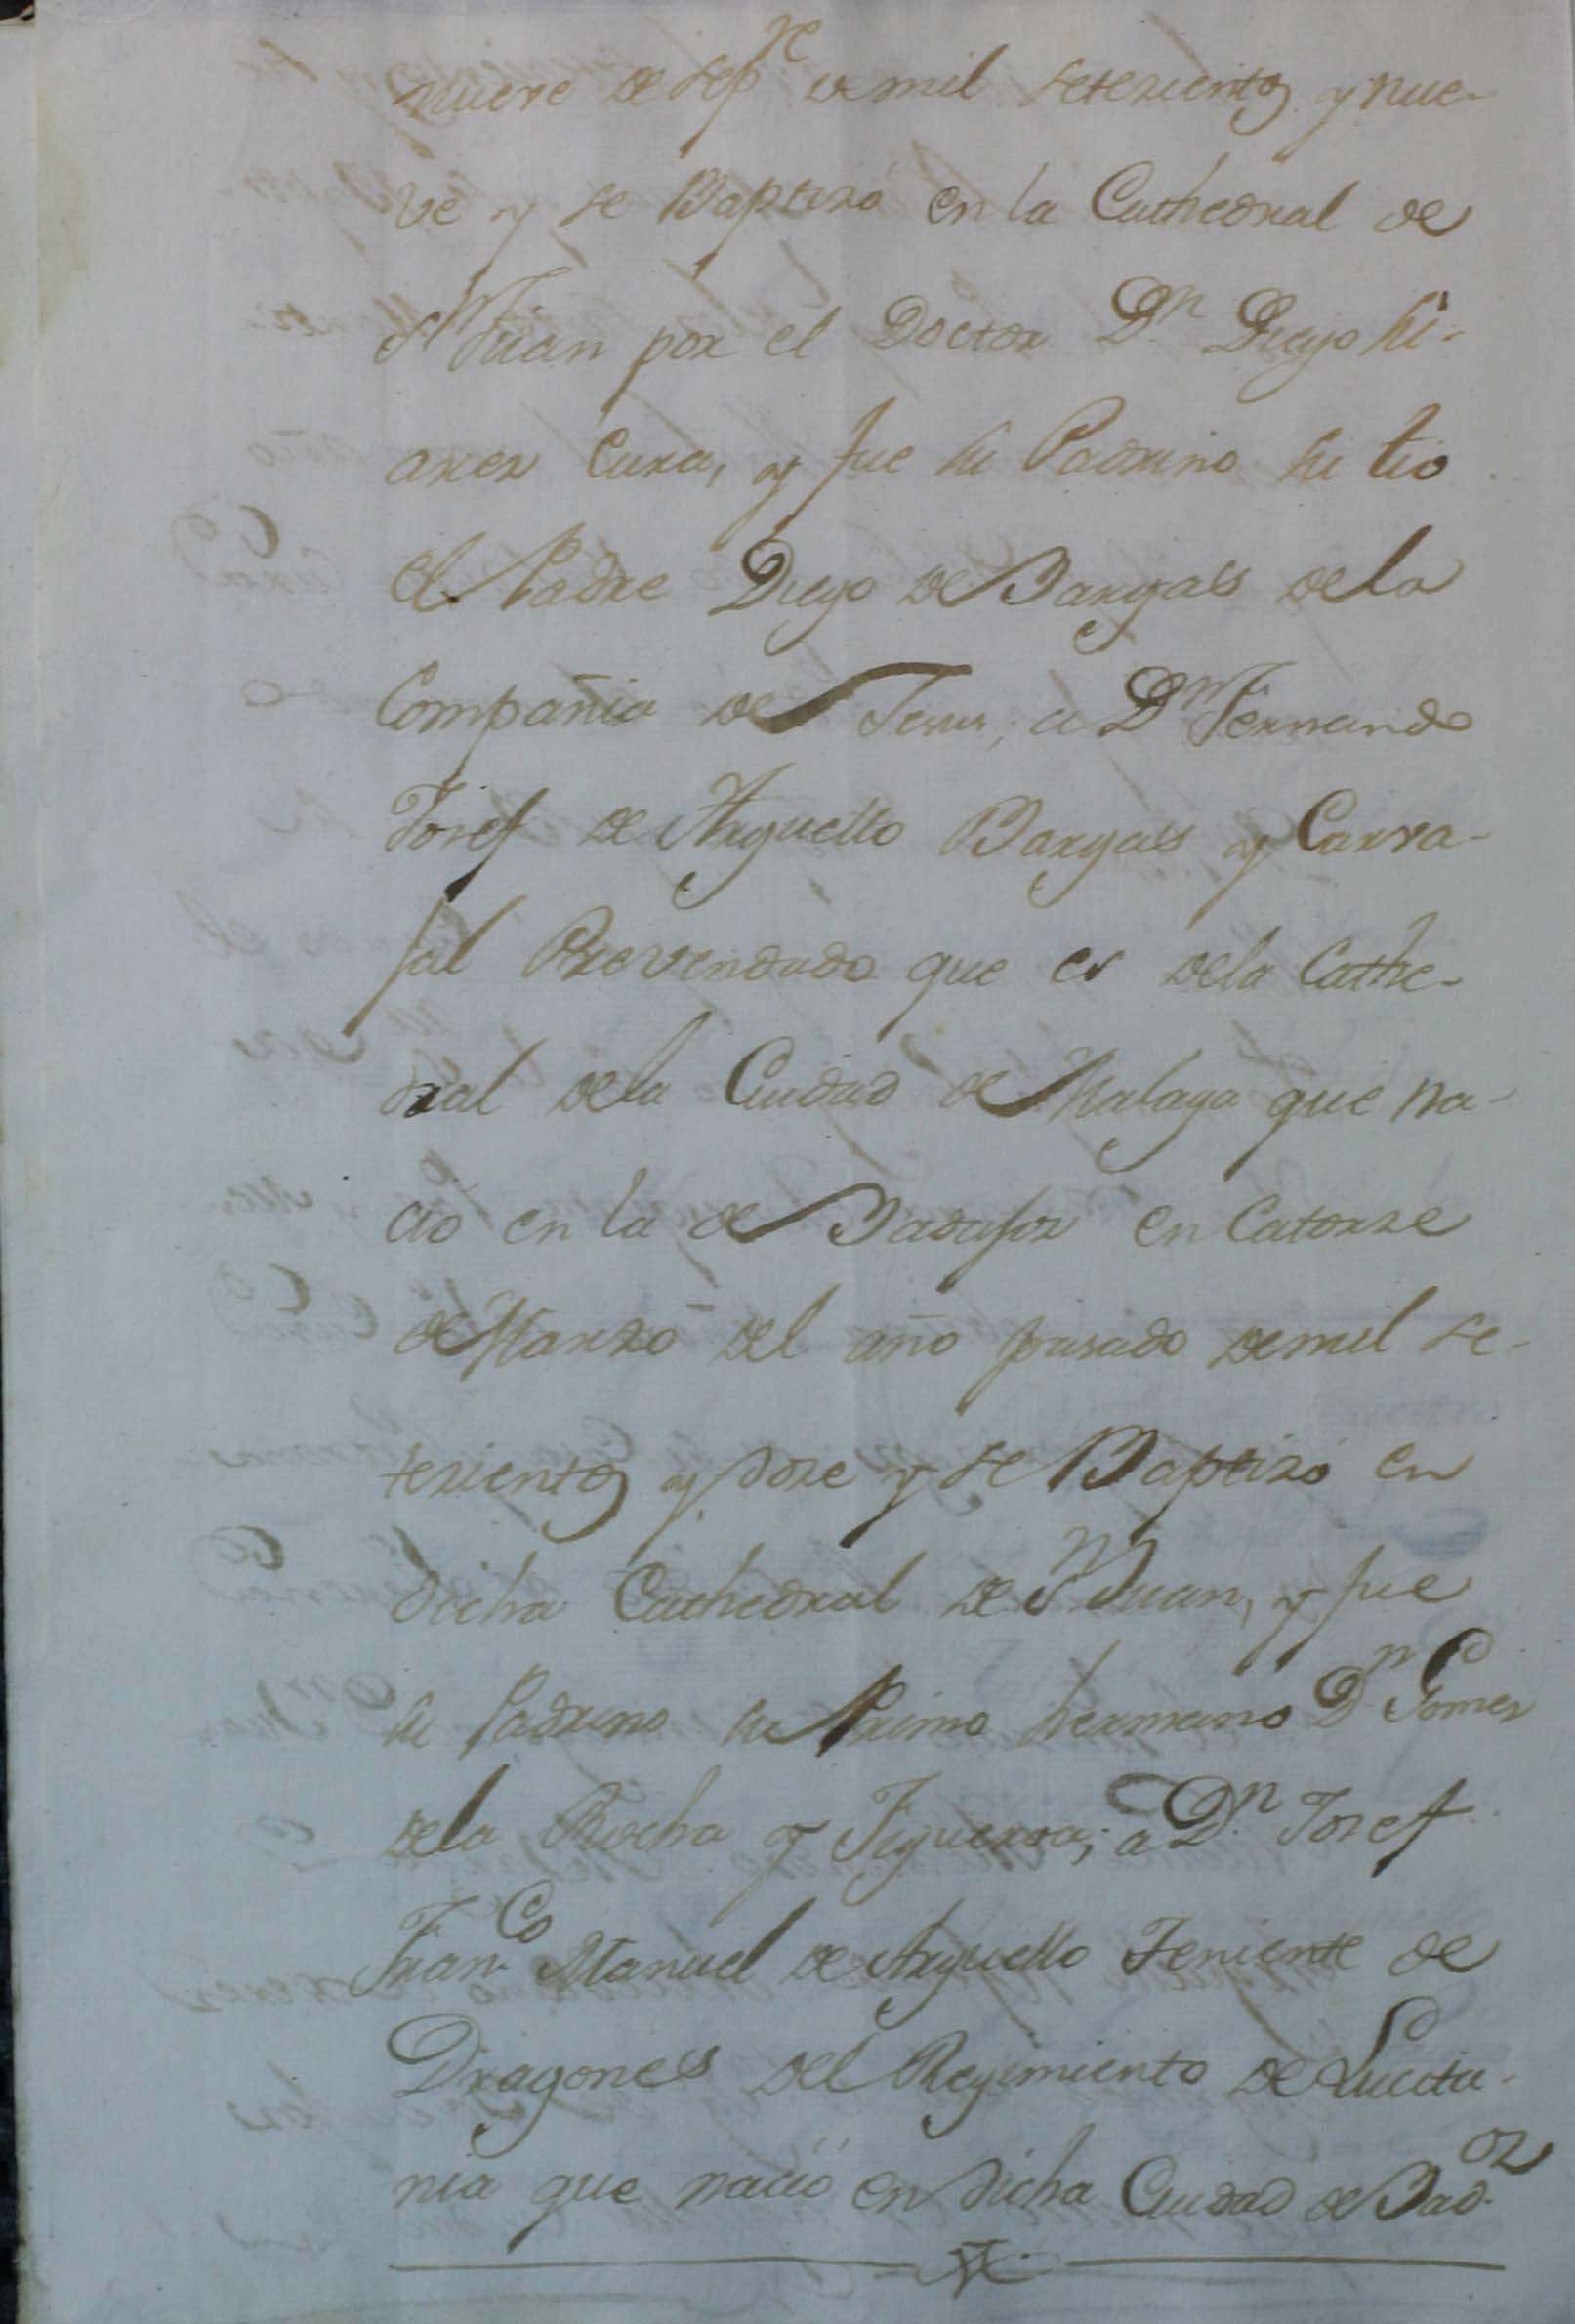 nueve de Sep.re de mil setezientos y nue-
ve y se Baptizó en la Cathedral de
Sn Juan por el Doctor Dn Diego Su-
arez Cura, y fue su Padrino su tio
el Padre Diego de Bargas de la
Compañia de Jesus; a Dn Fernando
Josef de Arguello Bargas y Carva-
jal Prevendado que es de la Cathe-
dral de la Ciudad de Malaga que na-
cio en la de Badajoz en Catorze
de Marzo del año pasado de mil se-
tezientos y doze y se Baptizó en
dicha Cathedral de Sn Juan, y fue
su Padrino su Primo hermano Dn Gomez
de la Rocha y Figueroa; a Dn Josef
Fran.co Manuel de Arguello Teniente de
Dragones del Regimiento de Lucita-
nia que nació en dicha Ciudad de Bad.oz